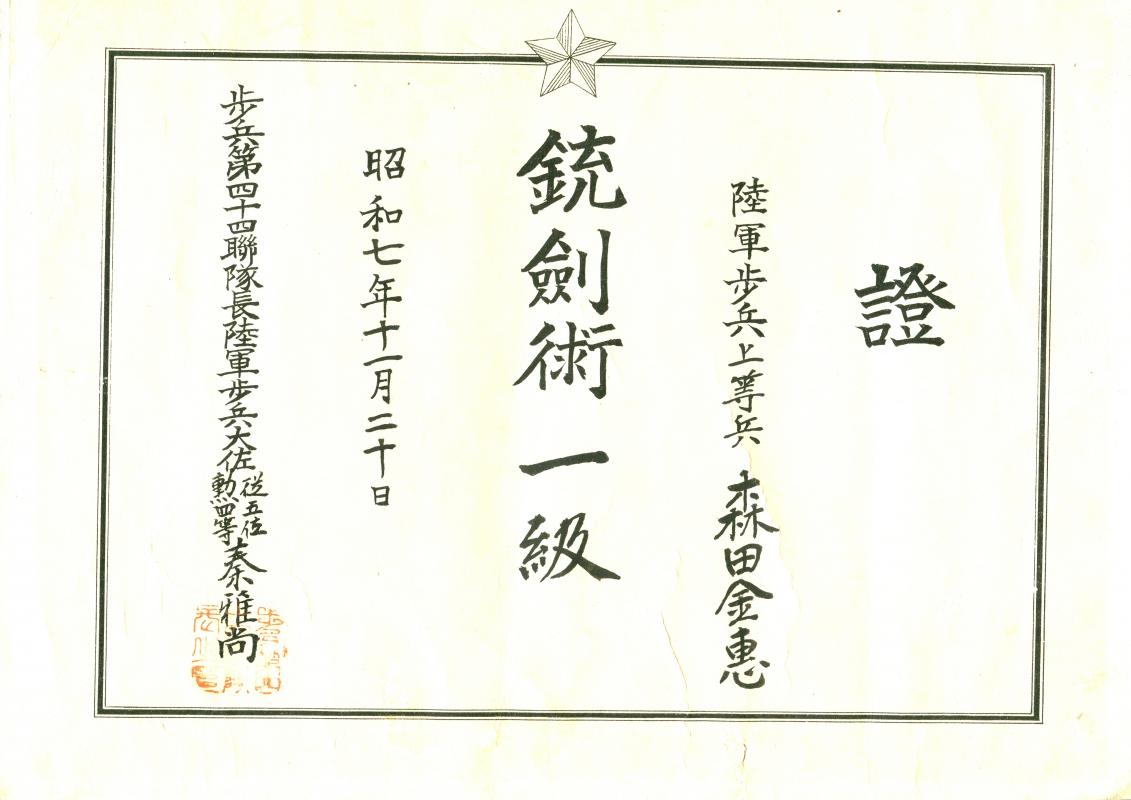 證
陸軍步兵上等兵 森田金惠
銃劍術一級
昭和七年十一月二十日
步兵第四十四聯隊長陸軍步兵大佐從五位勳四等秦雅尚